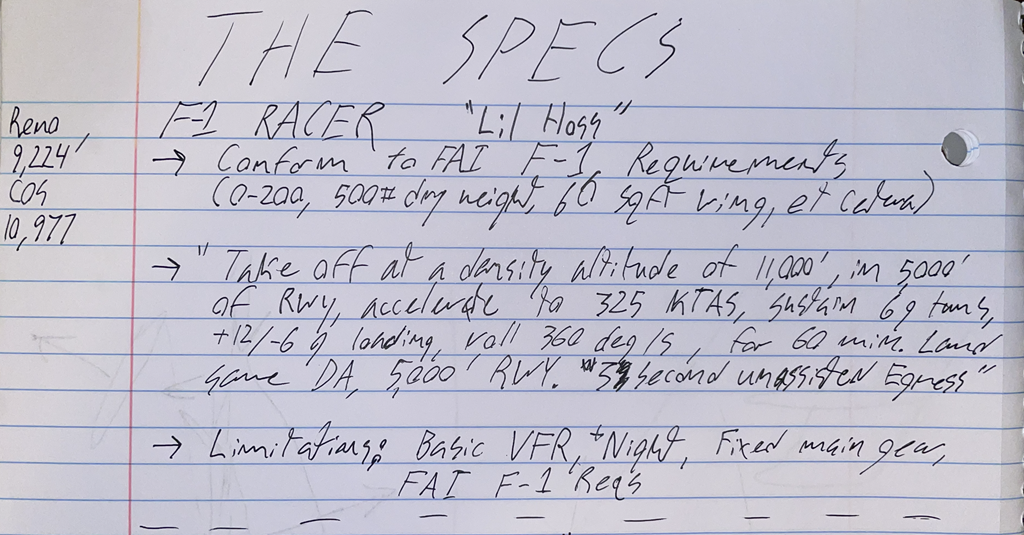 THE SPECS
Reno,
9,224'
COS
10,977
F-1 RACER "Lil Hogg"
→ Conform to FAI F-1 Requirements
(O-200, 500# dry weight, 66 sqft wing, et cetera)
→ "Take off at a density altitude of 11,000', in 5,000'
of RWY, accelerate to 325 KTAS, sustain 6g turns,
+12/-6 g loading, roll 360 deg/s, for 60 min. Land
same DA, 5,000' RWY. "5 second unassisted Egress"
→ Limitations: Basic VFR, + Night, Fixed main gear,
FAI F-1 Reqs